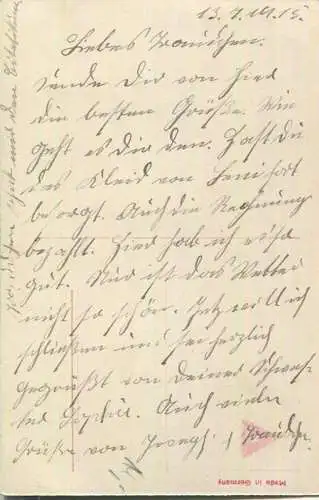 13.7.1915.
Liebes Trautchen.
sende Dir von hier
die besten Grüße. Wie
geht es dir den. Hast du
das Kleid von Leni fort
besorgt. Auch die Rechnung
bezahlt. Hier hab ich es so
gut. Nur ist das Wetter
nicht so schön. Jetz will ich
schließen und sei herzlich
gegrüßt von deiner Schwes-
ter Sophie. Auch viele
Grüße von Joseph
Made in Germany